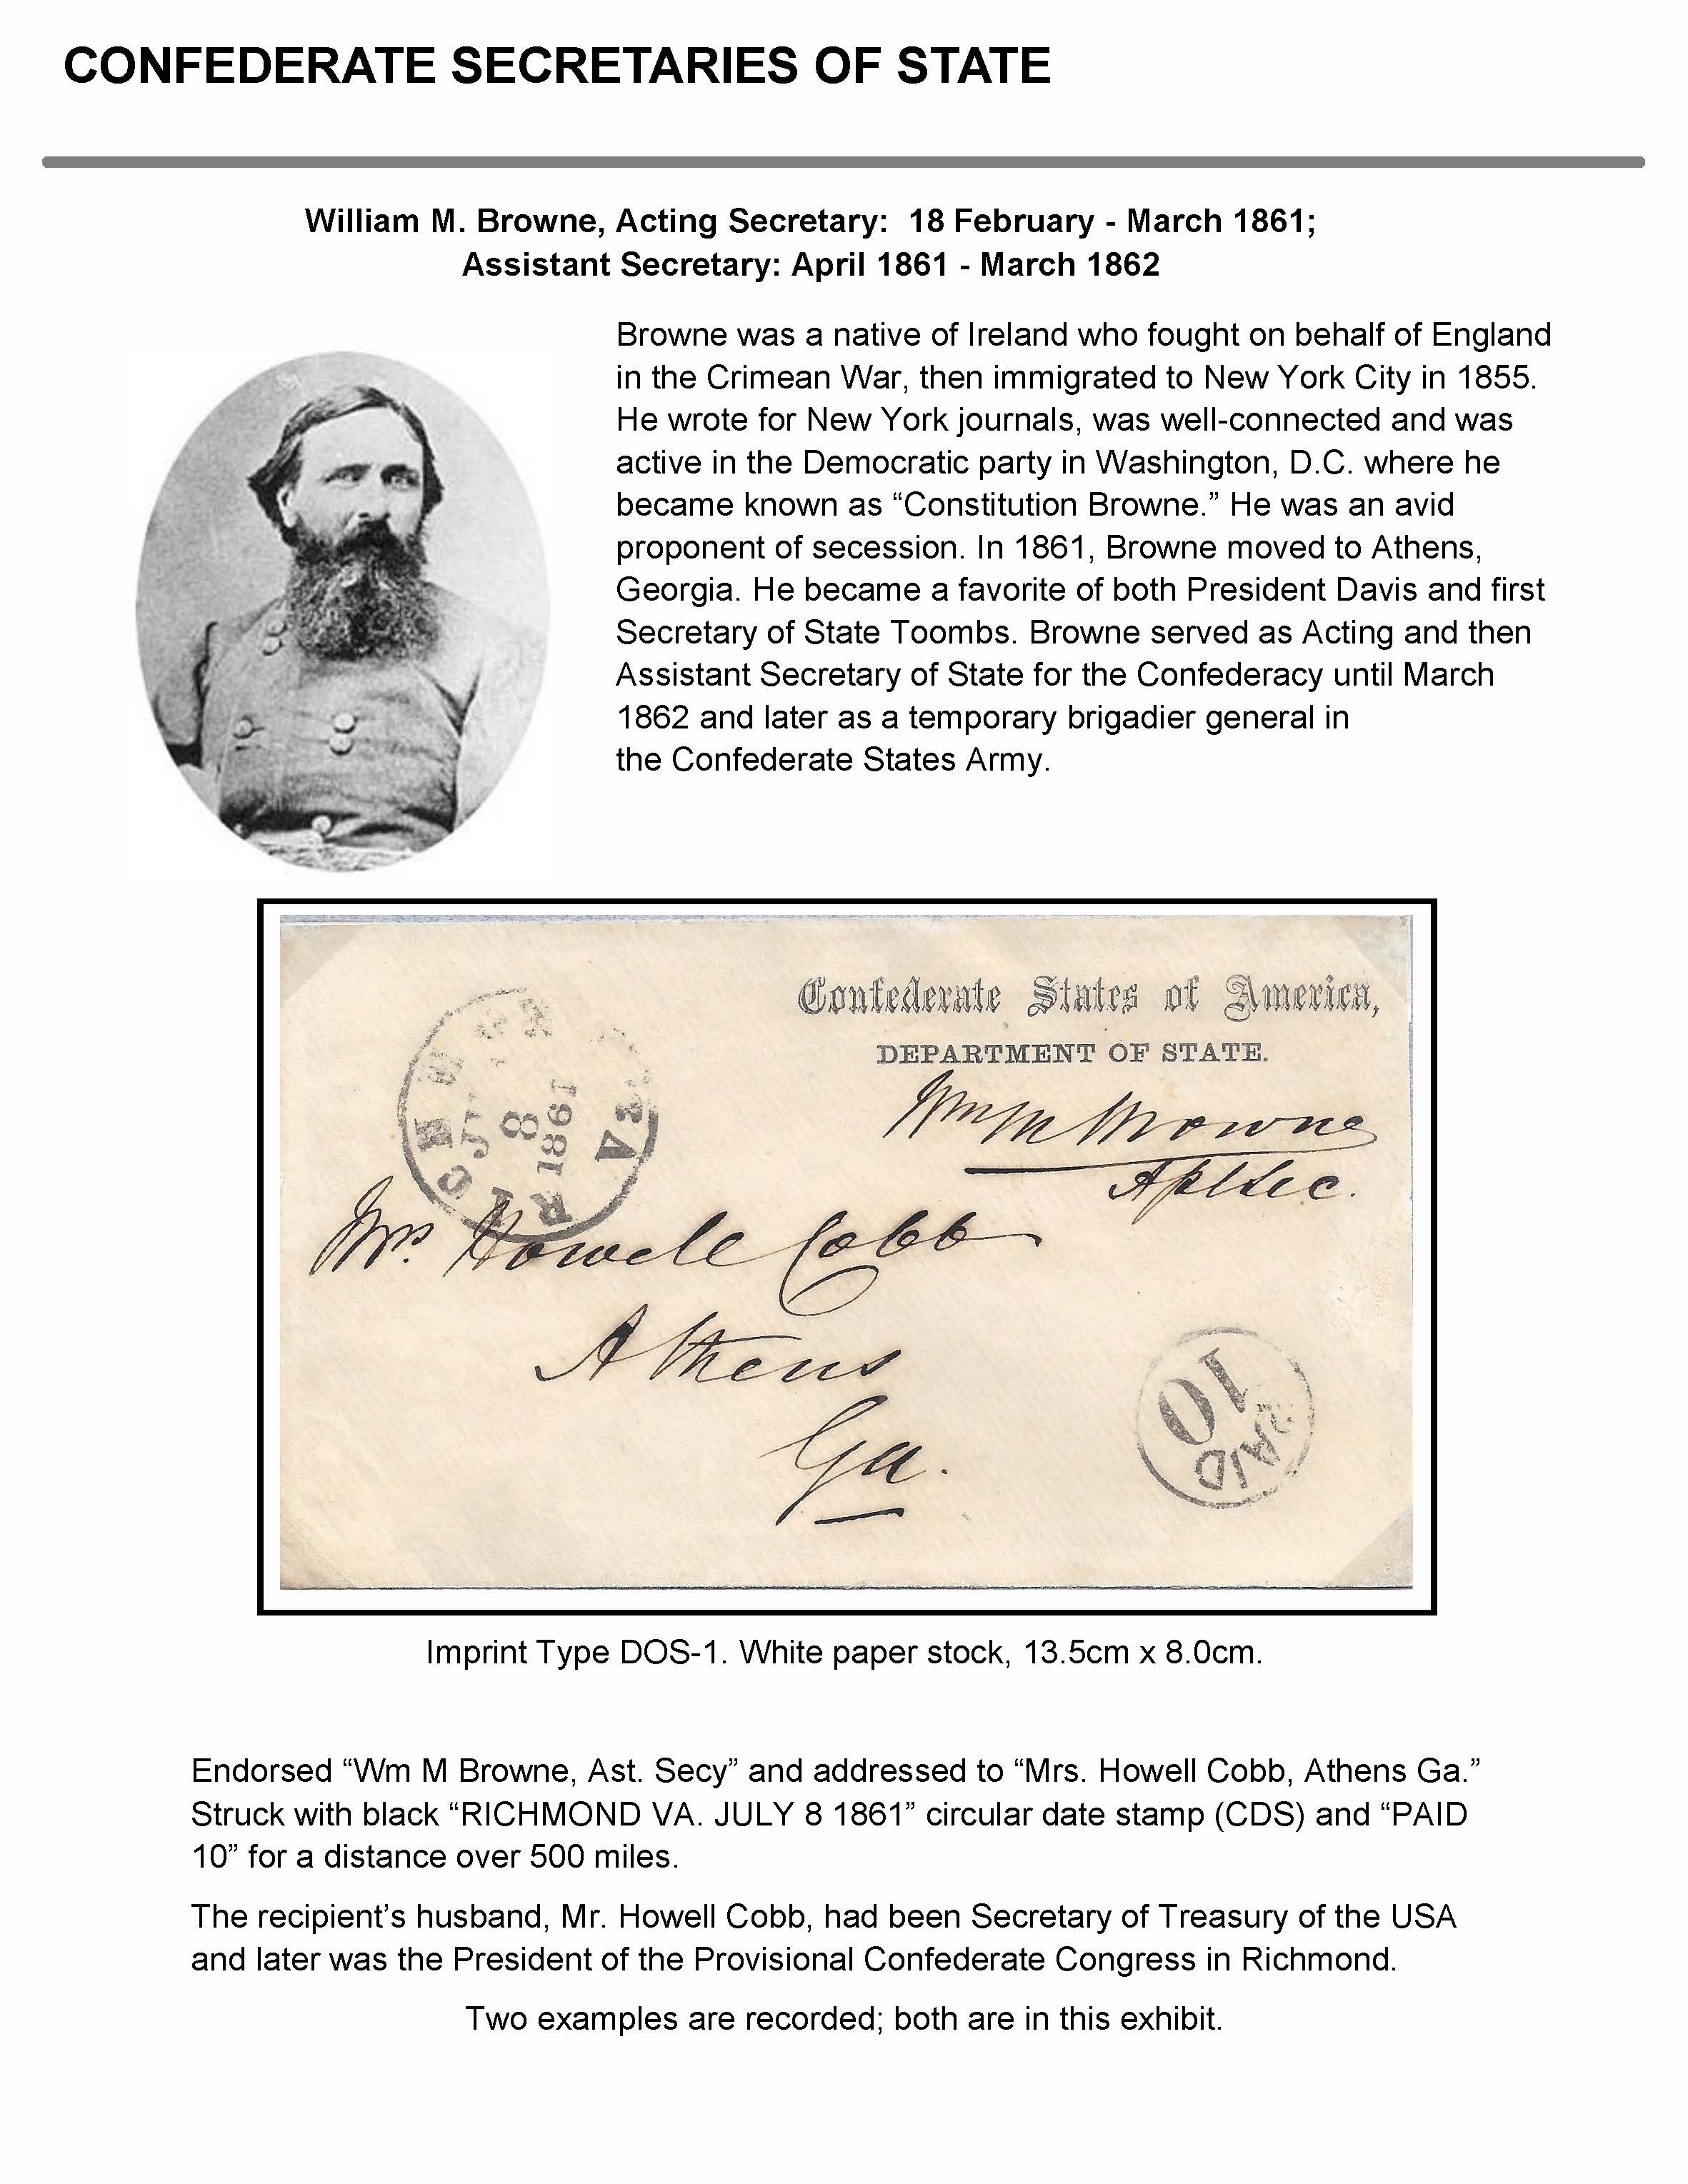 CONFEDERATE SECRETARIES OF STATE
William M. Browne, Acting Secretary: 18 February - March 1861;
Assistant Secretary: April 1861 - March 1862
Browne was a native of Ireland who fought on behalf of England
in the Crimean War, then immigrated to New York City in 1855.
He wrote for New York journals, was well-connected and was
active in the Democratic party in Washington, D.C. where he
became known as “Constitution Browne.” He was an avid
proponent of secession. In 1861, Browne moved to Athens,
Georgia. He became a favorite of both President Davis and first
Secretary of State Toombs. Browne served as Acting and then
Assistant Secretary of State for the Confederacy until March
1862 and later as a temporary brigadier general in
the Confederate States Army.
Confederate States of America,
DEPARTMENT OF STATE.
Wm M Browne
8
1861
Va
Mrs. Howell Cobb
Athens
Ga.
PAID
10
Imprint Type DOS-1. White paper stock, 13.5cm x 8.0cm.
Endorsed “Wm M Browne, Ast. Secy” and addressed to “Mrs. Howell Cobb, Athens Ga.”
Struck with black “RICHMOND VA. JULY 8 1861” circular date stamp (CDS) and “PAID
10” for a distance over 500 miles.
The recipient’s husband, Mr. Howell Cobb, had been Secretary of Treasury of the USA
and later was the President of the Provisional Confederate Congress in Richmond.
Two examples are recorded; both are in this exhibit.